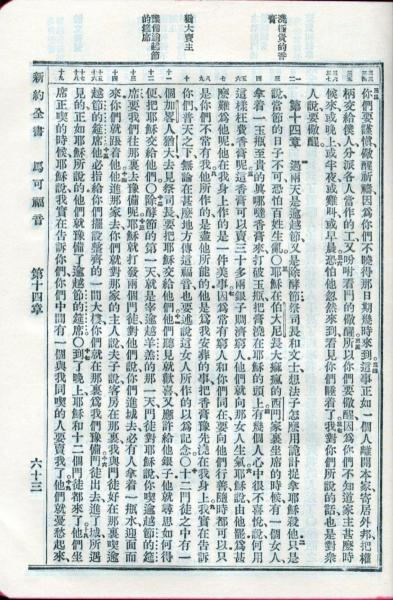 澆極貴的香膏
猶大賣主
豫備逾越節的筵席
你們要謹愼儆醒祈禱因爲你們不曉得那日期幾時來到這事正如一個人離開本家寄居外邦把權
柄交給僕人分派各人當作的工又吩咐看門的儆醒所以你們要儆醒因爲你們不知道家主甚麼時
候來或晚上或半夜或雞叫或早晨恐怕他忽然來到看見你們睡着了我對你們所說的話也是對衆
人說要儆醒
第十四章 過兩天是逾越節又是除酵節祭司長和文士想法子怎麼用詭計捉拿耶穌殺他只是
說當節的日子不可恐怕百姓生亂〇耶穌在伯大尼長大痲瘋的西門家裏坐席的時候有一個女人
拿着一玉瓶至貴的眞哪噠香膏來打破玉瓶把膏澆在耶穌的頭上有幾個人心中很不喜悅說何用
這樣枉費香膏呢這香膏可以賣三十多兩銀子賙濟窮人他們就向那女人生氣耶穌說由他罷爲甚
麼難爲他呢他在我身上作的是一件美事因爲常有窮人和你們同在要向他們行善隨時都可以只
是你們不常有我他所作的是盡他所能的他是爲我安葬的事把香膏豫先澆在我身上我實在告訴
你們普天之下無論在甚麼地方傳這福音也要述說這女人所作的以爲記念〇十二門徒之中有一
個加畧人猶大去見祭司長要把耶穌交給他們他們聽見就歡喜又應許給他銀子他就尋思如何得
便把耶穌交給他們〇除酵節的第一天就是宰逾越羊羔的那一天門徒對耶穌說你喫逾越節的筵
席要我們往那裏去豫備呢耶穌就打發兩個門徒對他們說你們進城去必有人拿着一瓶水迎面而
來你們就跟着他他進那家去你們就對那家的主人說夫子說客房在那裏我與門徒好在那裏喫逾
越節的筵席他必指給你們擺設整齊的一間大樓你們就在那裏爲我們豫備門徒出去進了城所遇
見的正如耶穌所說的他們就豫備了逾越節的筵席〇到了晚上耶穌和十二個門徒都來了他們坐
席正喫的時候耶穌說我實在告訴你們你們中間有一個與我同喫的人要賣我了他們就憂愁起來
新約全書 馬可福音 第十四章 六十三